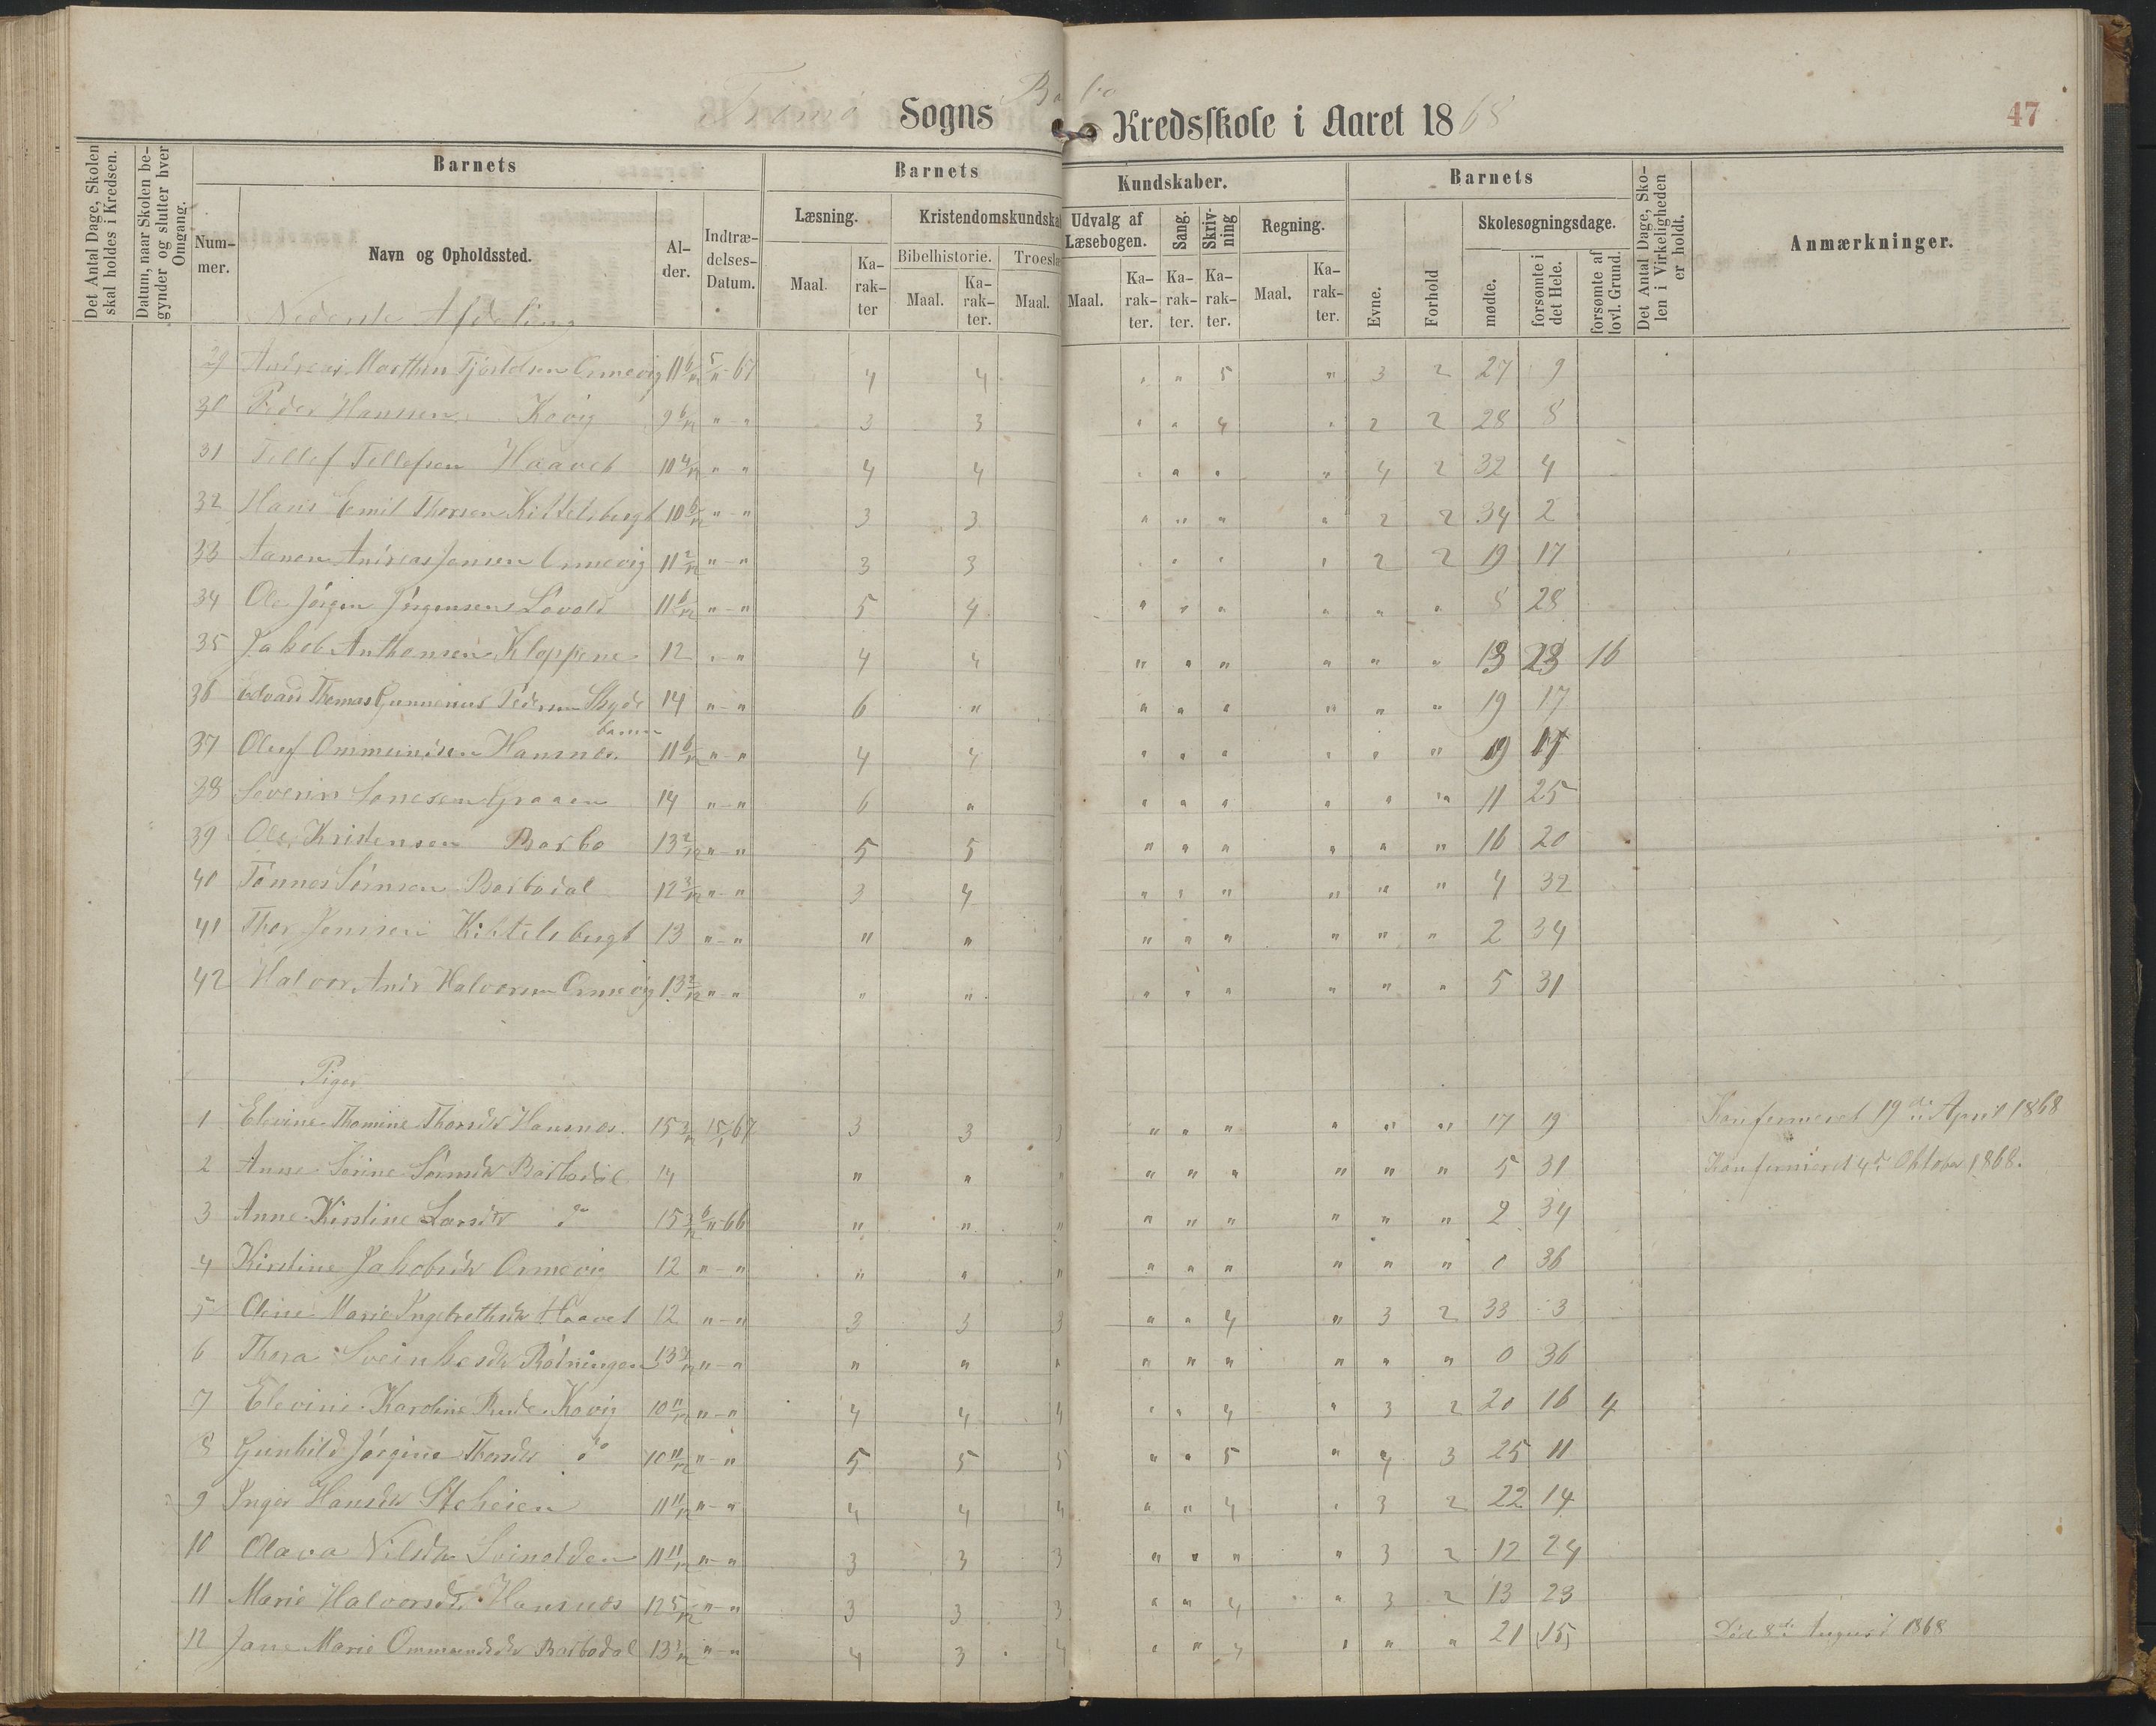 Tromø Sogns Barbo Kredsskole i Aaret 1868
47
Det Antal Dage, Skolen skal holdes i Kredsen.
Datum, naar Skolen begynder og slutter hver Omgang.
Barnets
Barnets
Kundskaber.
Barnets
Nummer.
Navn og Opholdssted.
Alder.
Indtrædelses-Datum.
Læsning.
Kristendomskundskab
Udvalg af Læsebogen.
Sang.
Skrivning
Regning.
Evne.
Forhold
Skolesøgningsdage.
Det Antal Dage, Skolen i Virkeligheden er holdt.
Anmærkninger.
Bibelhistorie.
Troeslæ
Maal.
Karakter
Maal.
Karakter.
Maal.
Maal.
Karakter.
Karakter.
Karakter.
Maal.
Karakter.
mødte.
forsømte i det Hele.
forsømte af lovl. Grund.
Nederste Afdeling
29 Andreas Marthin Omevig 11 6/12 5/11-67 4 4 " " 5 " 3 2 27 9
30 Peder Hansen Kovig 9 6/12 " - " 3 3 " " 4 " 2 2 28 8
31 Tellef Tellefsen Haavet 10 4/12 " " 4 4 " " " " 4 2 32 4
32 Hans Emil Thorsen Kittelsbugt 10 6/12 " - " 3 3 " " " " 2 2 34 2
33 Aanon Andreas Jensen Omevig 11 2/12 " - " 3 3 " " " " 2 2 19 17
34 Ole Jørgen Jørgensen Løvold 11 6/12 " - " 5 4 " " " " " " 8 28
35 Jakob Anthonsen Kloppene 12 " - " 4 4 " " " " " " 13 23 16
36 Edvard Thomas Gunnerius Pedersen 14 " - " 6 " " " " " " " 19 17
37 Oluf Ommundsen Hansnes 11 6/12 " - " 4 4 " " " " " " 19 17
38 Severin 14 " - " 6 " " " " " " " 11 25
39 Ole Kristensen Barbo 13 2/12 " - " 5 5 " " " " " " 16 20
40 Tønnes Sørensen Barbodal 12 3/12 " - " 3 4 " " " " " " 4 32
41 Thor Jensen Kittelsbugt 13 " - " " " " " " " " " 2 34
42 Halvor Andr Halvorsen Omevig 13 2/12 " - " " " " " " " " " 5 31
Piger
1 Elevine Thomine Thorsdtr Hansnes 15 3/12 15/1 67 3 3 3 " " " " " " 17 19 Konfirmeret 19de April 1868
2 Anne Sørine Sørensdtr Barbodal 14 " " " " " " " " " 5 31 Konfirmeret 4de Oktober 1868.
3 Anne Kirstine Larsdtr do 15 3/12 6/11-66 " " " " " " " " " 2 34
4 Kirstine Jakobsdtr Omevig 12 " - " " " " " " " " " " 0 36
5 Oline Marie Ingebrethsdtr Haavet 12 " - " 3 3 3 " " 4 " 3 2 33 3
6 Thora " - " " " " " " " " " " 0 36
7 Elevine Karoline Kovig 10 11/12 " - " 4 4 4 " " 4 " 3 2 20 16 4
8 Gunhild Jørgine Thorsdtr do 10 11/12 " - " 5 5 5 " " 5 " 4 3 25 11
9 Inger Hansdtr Steheien 11 11/12 " - " 4 4 4 " " 4 " 3 2 22 14
10 Olava Nilsdtr 11 11/12 " - " 3 3 3 " " " " 3 2 12 24
11 Marie Halvorsdtr Hansnes 12 5/12 " - " 3 3 3 " " 4 " 3 2 13 23
12 Jane Marie Ommundsdtr Barbodal 13 1/12 " - " 4 3 4 " " 4 " " " 21 15 Død 8de August 1868